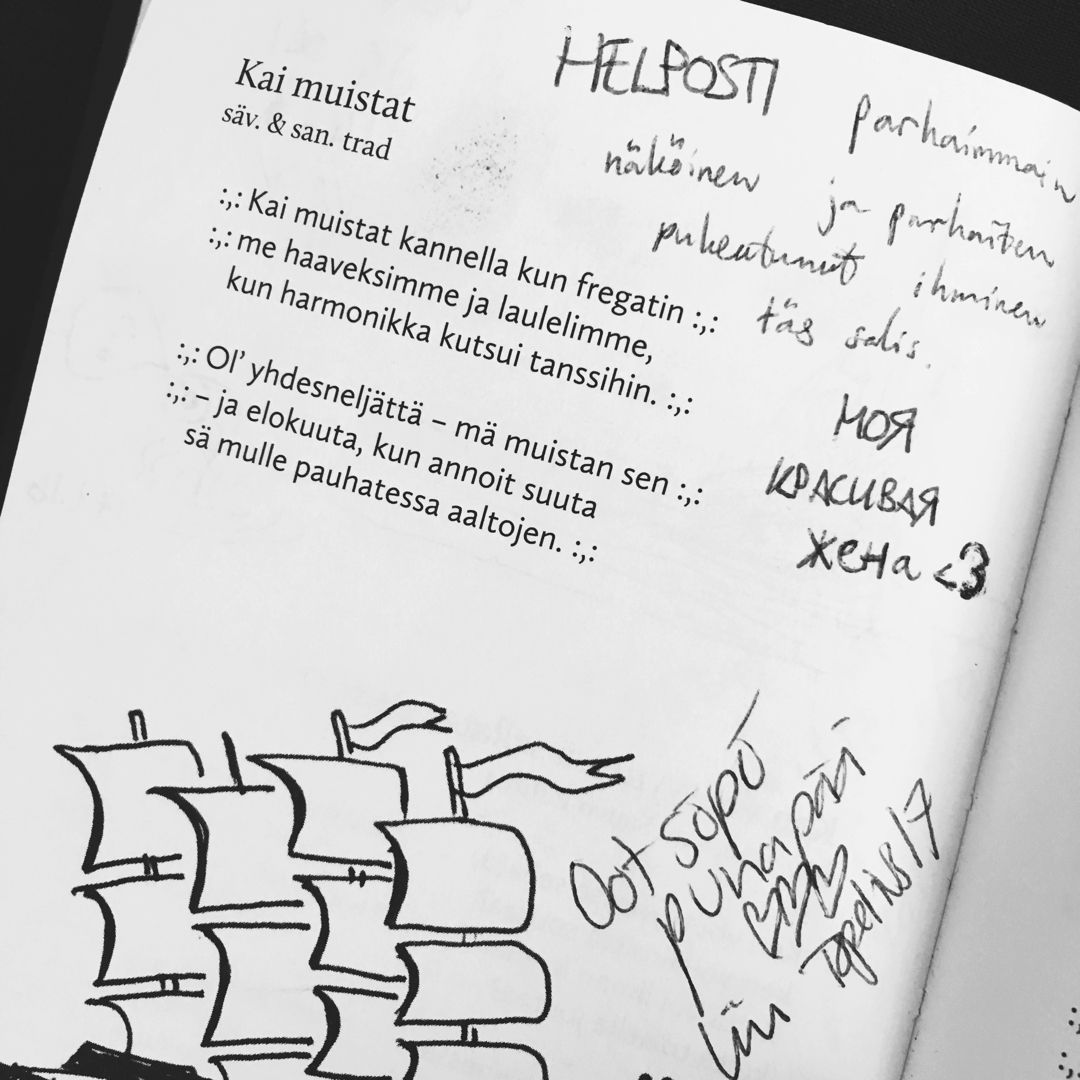 Kai muistat
säv. & san. trad
:,: Kai muistat kannella kun fregatin :,:
:,: me haaveksimme ja laulelimme,
kun harmonikka kutsui tanssihin. :,:
:,: Ol’ yhdesneljättä – mä muistan sen :,:
:,: – ja elokuuta, kun annoit suuta
sä mulle pauhatessa aaltojen. :,:
HELPOSTI parhaimmain
näköinen ja parhaiten
pukeutunut ihminen
täs salis.
МОЯ
КРАСИВАЯ
ЖЕНА <3
Oot söpö
punapää
Topelius 17